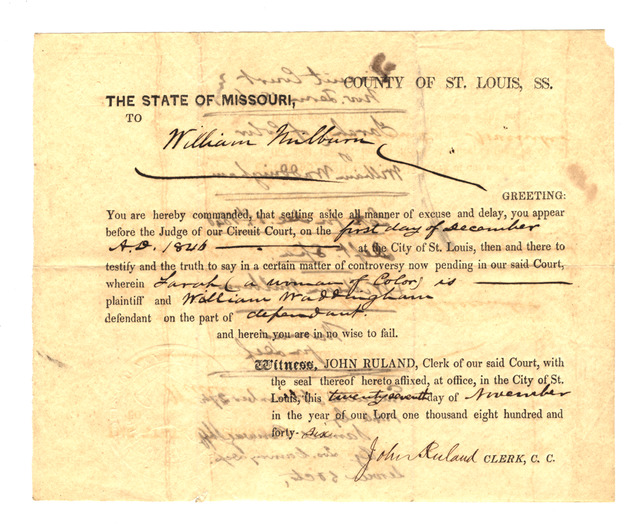 COUNTY OF ST. LOUIS, SS.
THE STATE OF MISSOURI,
TO
William Milburn
GREETING:
You are hereby commanded, that setting aside all manner of excuse and delay, you appear
before the Judge of our Circuit Court, on the first day of december
A.D. 1846 at the City of St. Louis, then and there to
testify and the truth to say in a certain matter of controversy now pending in our said Court,
wherein Sarah (a woman of Color) is
plaintiff and William Waddingham
defendant on the part of defendant.
and herein you are in no wise to fail.
Witness, JOHN RULAND, Clerk of our said Court, with
the seal thereof hereto affixed, at office, in the City of St.
Louis, this twenty seventh day of November
in the year of our Lord one thousand eight hundred and
forty-six
John Ruland CLERK, C. C.